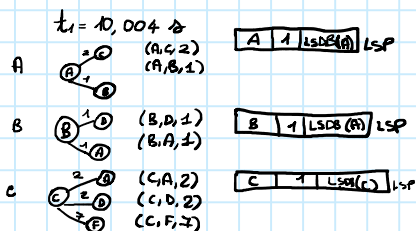 t₁ = 10,004 s
A
2 C
A
1 B
(A,C,2)
(A,B,1)
A 1 LSDB(A) LSP
B
1 D
B
1 A
(B,D,1)
(B,A,1)
B 1 LSDB(A) LSP
C
2 A
C 2 D
7 F
(C,A,2)
(C,D,2)
(C,F,7)
C 1 LSDB(C) LSP